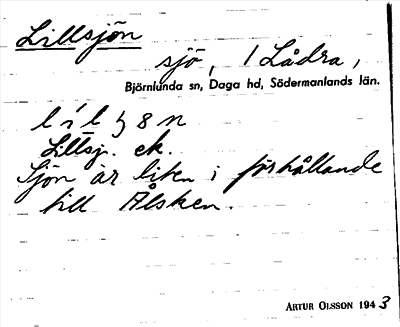 Lillsjön
sjö, 1 Lådra,
Björnlunda sn, Daga hd, Södermanlands län.
Lillsj. ek.
Sjön är liten i förhållande
till Älsken.
ARTUR OLSSON 1943